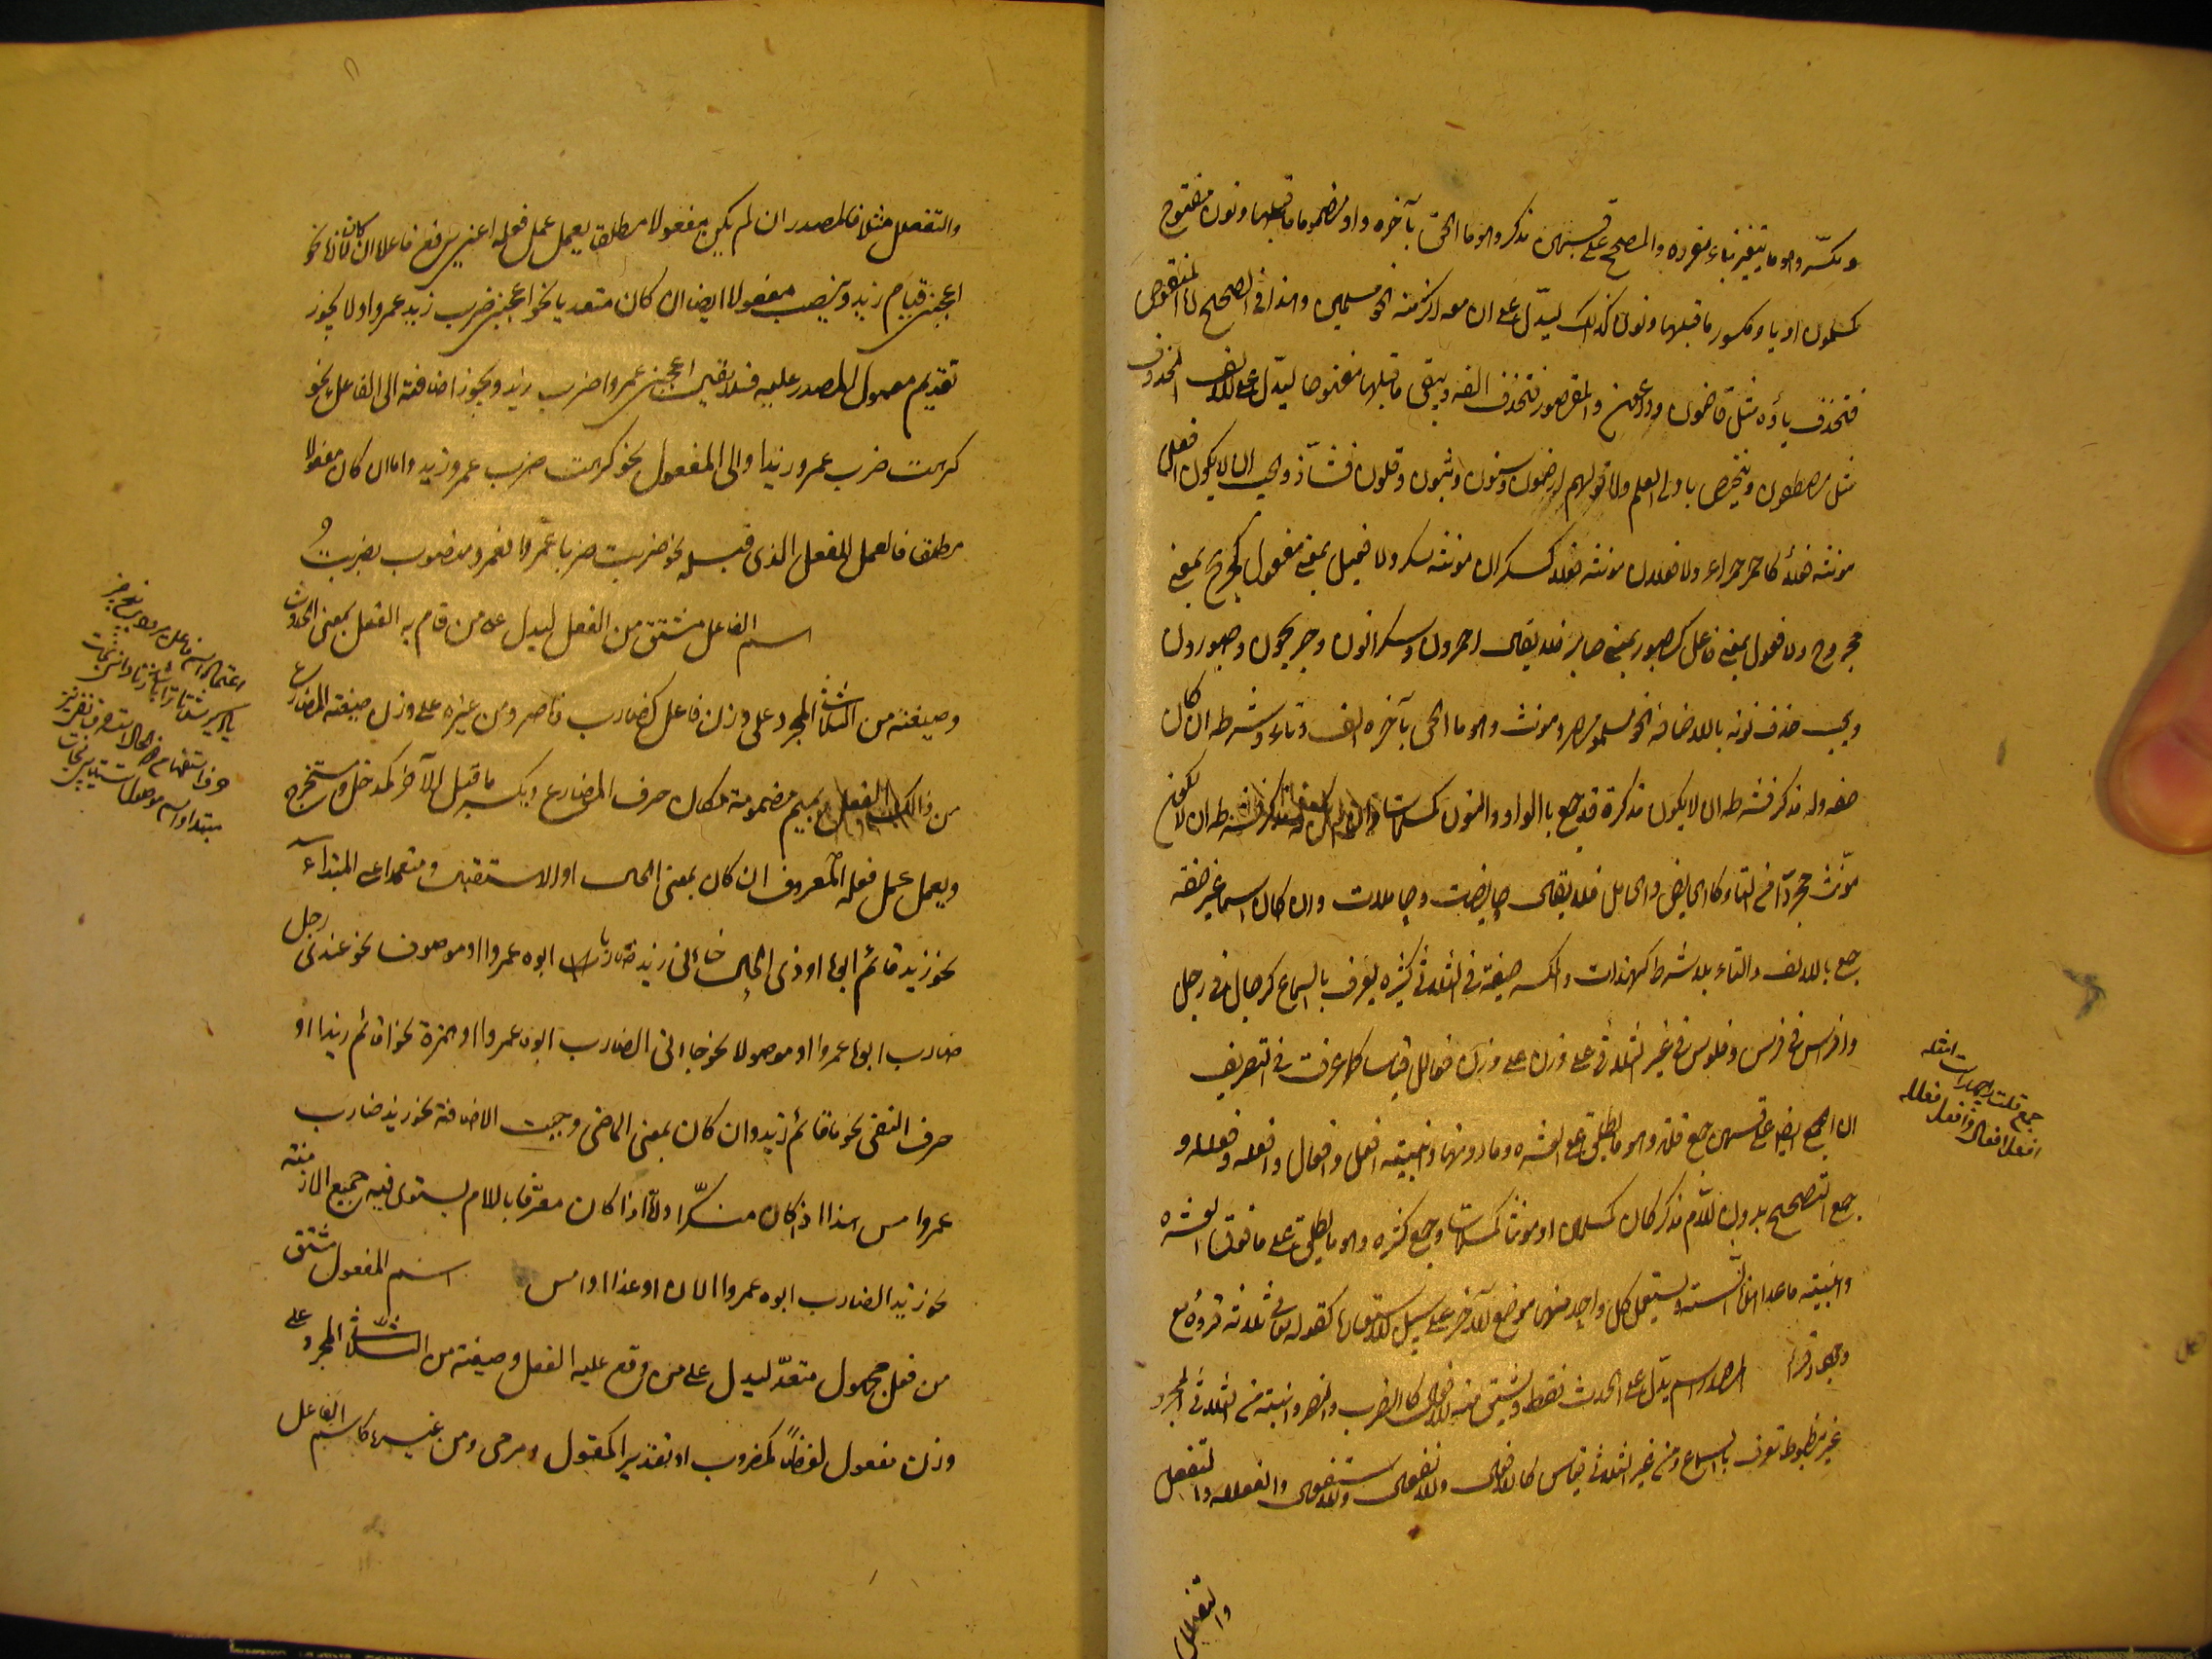 ومكسّر وهو ما يتغير بناء مفرده والمصحح على قسمين مذكر وهو ما الحق بآخره واو مضموما ماقبلها ونون مفتوح
كمسلمون او ياء مكسور ما قبلها ونون كذلك ليدلّ على ان معه اكثر منه نحو مسلمين وهذا في الصحيح اما المنقوص
فتحذف ياؤه مثل قاضون وداعون والمقصور فتحذف الفه ويبقى ماقبلها مفتوحا ليدلّ على الالف المحذوف
مثل مصطفون ويختص باولى العلم واما قولهم ارضون وسنون وثبون وقلون فشاذ ويجب ان لا يكون افعل
مونثه فعلاء كاحمر حمراء ولا فعلان مونثه فعلى كسكران مونثه سكرى ولا فعيل بمعنى مفعول كجريح بمعنى
مجروح ولا فعول بمعنى فاعل كصبور بمعنى صابر فلا يقال احمرون وسكرانون وجريحون وصبورون
ويجب حذف نونه بالاضافة نحو مسلمو مصر ومونث وهو ما الحق بآخره الف وتاء وشرطه ان كان
صفة وله مذكر فشرطه ان لا يكون مذكره قد جمع بالواو والنون كمسلمات وان لم يكن له مذكر فشرطه ان لا يكون
مؤنث مجردا من التاء كالحايض والحامل فلا يقال حايضات وحاملات وان كان اسما غير صفة
جمع بالالف والتاء بلا شرط كهندات والمكسر صيغته في الثلاثي كثيرة يعرف بالسماع كرجال في رجل
وافراس في فرس وفلوس في غير الثلاثي على وزن على وزن فعالل قياسا كما عرفت في التصريف
ان الجمع ايضا على قسمين جمع قلة وهو ما يطلق على العشرة وما دونها وابنيته افعل وافعال وافعلة وفعلة و
جمع التصحيح بدون اللام مذكر كان كمسلمين او مونثا كمسلمات وجمع كثرة وهو ما يطلق على ما فوق العشرة
وابنيته ماعدا هذه الستة ويستعمل كل واحد منهما موضع الآخر على سبيل الاستعارة كقوله تعالى ثلاثة قروء مع
وجود اقراء المصدر اسم يدل على الحدث فقط ويشتق منه الافعال كالضرب والنصر وابنيته من الثلاثي المجرد
غير مضبوط تعرف بالسماع ومن غير الثلاثي قياس كالافعال والانفعال والاستفعال والفعللة والتفعلل
والتفعلل
جمع قلت را چهار است امثله
افعل افعال وافعلة فعله
والتفعلل مثلا فالمصدر ان لم يكن مفعولا مطلقا يعمل عمل فعله اعنى يرفع فاعلا ان كان لازما نحو
اعجبنى قيام زيد وينصب مفعولا ايضا ان كان متعديا نحو اعجبنى ضرب زيد عمروا ولا يجوز
تقديم معمول المصدر عليه فلا يقال اعجبنى عمروا ضرب زيد ويجوز اضافته الى الفاعل نحو
كرهت ضرب عمرو زيدا والى المفعول نحو كرهت ضرب عمرو زيد واما ان كان مفعولا
مطلقا فالعمل للفعل الذى قبله نحو ضربت ضربا عمروا فعمرو منصوب بضربت
اسم الفاعل مشتق من الفعل ليدل على من قام به الفعل بمعنى الحدوث
وصيغته من الثلاثى المجرد على وزن فاعل كضارب وناصر ومن غيره على وزن صيغة المضارع
من ذالك الفعل بميم مضمومة مكان حرف المضارع ويكسر ما قبل الآخر كمدخل ومستخرج
ويعمل عمل فعله المعروف ان كان بمعنى الحال او الاستقبال ومعتمدا على المبتداء
نحو زيد قائم ابوه او ذى الحال نحو جائنى زيد ضاربا ابوه عمروا او موصوف نحو عندى رجل
ضارب ابوه عمروا او موصولا نحو جائنى الضارب ابوه عمروا او همزة نحو اقائم زيدا او
حرف النفى نحو ما قائم زيد وان كان بمعنى الماضى وجبت الاضافة نحو زيد ضارب
عمروا امس هذا اذا كان منكرا واما اذا كان معرّفا باللام يستوى فيه جميع الازمنة
نحو زيد الضارب ابوه عمروا الان او غدا او امس اسم المفعول مشتق
من فعل مجهول متعدّ ليدل على من وقع عليه الفعل وصيغته من الثلاثى المجرد على
وزن مفعول لفظاً كمضروب او تقديرا كمقول ومرمى ومن غيره كاسم الفاعل